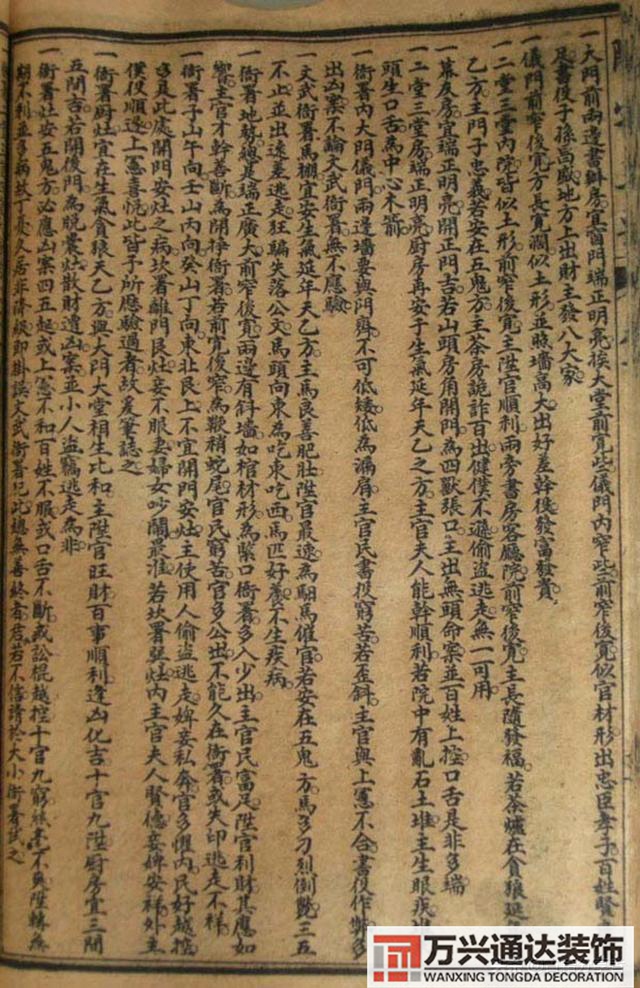 一大門前兩邊書辦房宜窗門端正明亮挨大堂前寬些儀門內窄些前窄後寬似官材形出忠臣孝子百姓賢
民書役子孫尚盛地方上出財主發八大家
一儀門前窄後寬方長寬濶似土形並照墻高大出好差幹後發富發貴
一二堂三堂內院皆似土形前窄後寬主陞官順利兩旁書房客廳院前窄後寬主長隨發福若茶爐在貪狼延
乙方主門子忠義若安在五鬼方主茶房詭詐百出健僕不遜偷盜逃走無一可用
一幕友房宜端正明亮開正門吉若山頭房角開門為四獸張口主出無頭命案並百姓上控口舌是非多端
一二堂三堂房端正明亮厨房再安于生氣延年天乙之方主官夫人能幹順利若院中有亂石土堆主生眼疾
頭生口舌為中心木箭
一衙署內大門儀門兩邊墻要與門齊不可低矮低為漏肩主官民書役窮苦若歪斜主官與上憲不合書役作弊多
出凶案不論文武衙署無不應驗
一文武衙署馬棚宜安生氣延年天乙方主馬良善肥壯陞官最速為馹馬催官若安在五鬼方馬多刁烈倒斃三五
不止並出遠差逃走狂騙失落公文馬頭向東為吃東吃西馬匹好養不生疾病
一衙署地勢總是端正廣大前窄後寬兩邊有斜墻如棺材形為緊口衙署多入少出主官民富足陞官利財其應如
響主官才幹善斷為開掙衙署若前寬後窄為鞭稍蛇尾官民窮苦官多公出不能久在衙署或失印逃走不祥
一衙署子山午向壬山丙向癸山丁向東北艮上不宜開門安灶主使用人偷盜逃走婢妾私奔官多懼內民好越控
多見此處開門安灶之病坎署離門艮灶妾不服妻婦女吵鬧最准若坎署巽灶內主官夫人賢德妾婢安祥外主
僕役順遂上憲喜悅此皆予所應驗過者故爰筆誌之
一衙署厨灶宜在生氣貪狼天乙方與大門大堂相生比和主陞官旺財百事順利逢凶化吉十官九陞厨房宜三間
五間吉若開後門為脫囊灶散財遭凶案並小人盜竊逃走為非
一衙署灶安五鬼方必應凶案四五起或上憲不和百姓不服或口舌不斷或訟棍越控十官九窮絲毫不爽陞轉為
期不利並多病故丁憂久居非降級即掛誤文武衙署犯此總無善終者君若不信請於大小衙署試之
万兴通达装饰
WANXING TONGDA DECORATION